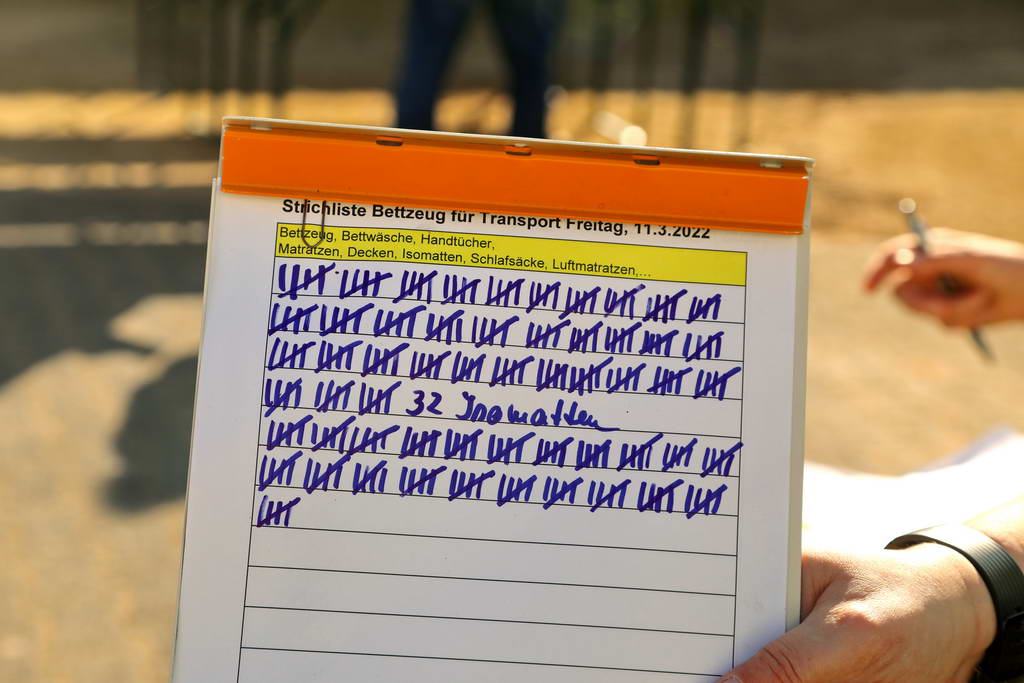 Strichliste Bettzeug für Transport Freitag, 11.3.2022
Bettzeug, Bettwäsche, Handtücher,
Matratzen, Decken, Isomatten, Schlafsäcke, Luftmatratzen,...
32 Isomatten